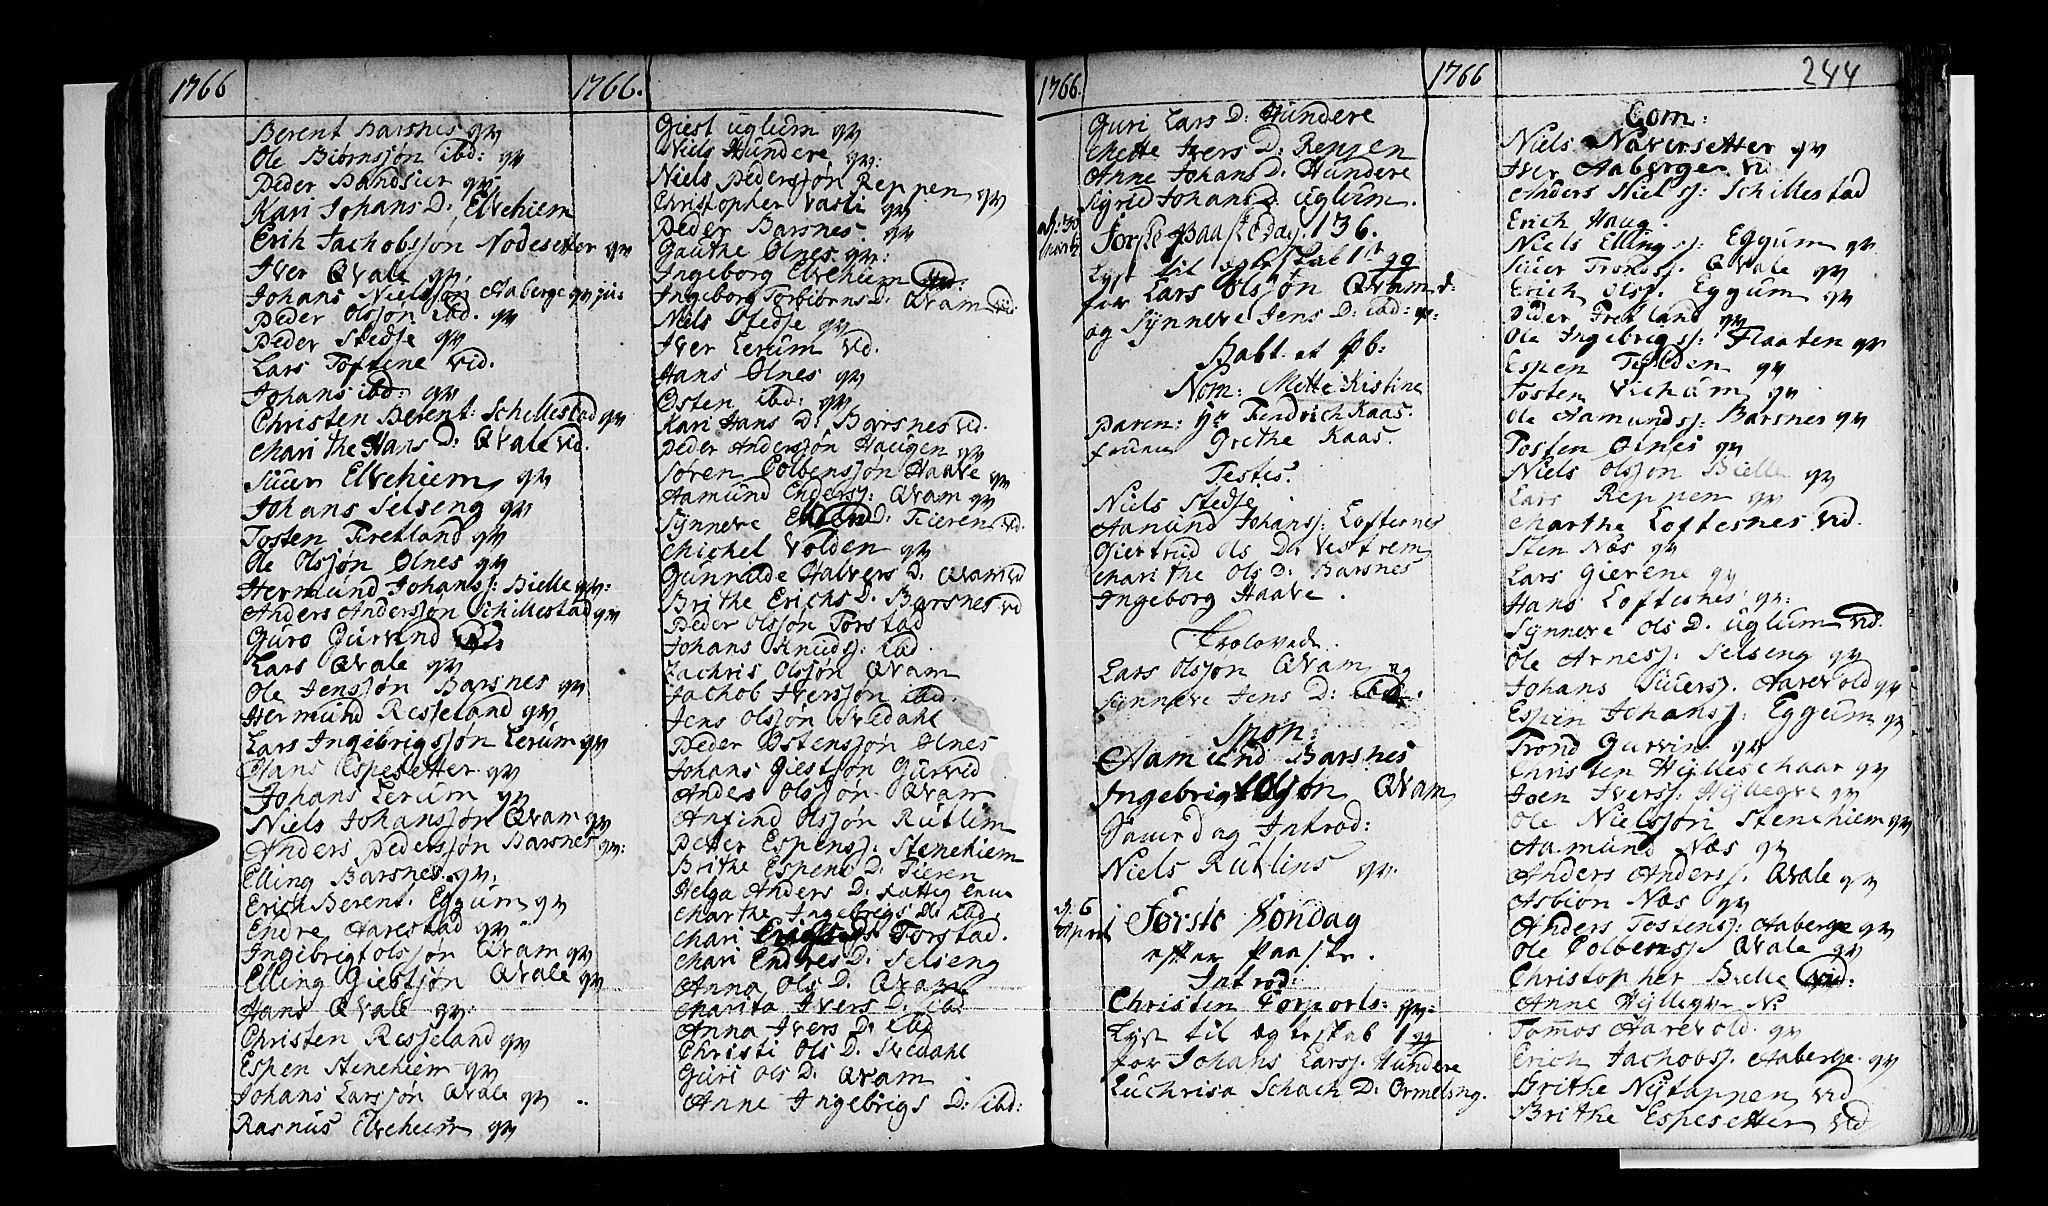 1766
Berent Barsnes qv
Ole Biørnsjøn ibd: qv
Peder Sandsur qv
Kari Johans D: Elvehiem
Erik Jachobssjøn Nødesetter qv
Iver Qvale qv.
Johans Nielssøn Aaberge qv jun:
Peder Olsjøn ibd. qv
Peder Stedje qv
Lars Toftene vid.
Johans ibd: qv
Christen Berent: Schillestad qv
Marithe Hans D: Qvale vid.
Siuur Elvehiem qv
Johans Selseng qv
Tosten Fretland qv
Ole Olsjøn Ølnes qv
Hermund Johansj: Bielle qv:
Anders Andersjøn Schillestad qv
Guro Gurvind
Lars Qvale qv
Ole Jensjøn Barsnes qv
Hermund Resseland qv
Lars Ingebrigsjøn Lerum qv
Hans Espesetter qv
Johans Lerum qv
Niels Johansjøn Qvam qv
Anders Pedersjøn Barsnes qv:
Elling Barsnes qv:
Erich Berent. Eggum qv
Endre Aarestad qv
Ingebrigt Olsjøn Qvam qv
Elling Giestsjøn Qvale qv
Hans Qvale qv:
Christen Resseland qv
Espen Stenehiem qv
Johans Larssjøn Qvale qv
Rasmus Elvehiem qv
1766.
Giest Uglum qv
Niels Hundere qv:
Niels Pedersjøn Reppen qv
Christopher Vasti qv
Peder Barsnes qv
Gauthe Ølnes qv:
Ingeborg Elvehiem
Ingeborg Torbiørns D: Qvam vid
Niels Stedje qv
Iver Lerum vid.
Hans Ølnes qv
Østen ibd: qv
Kari Hans D: Barsnes vid.
Peder Andersjøn Haugen qv
Søren Colbensjøn Haave qv
Aamund Endersj: Qvam qv
Synneve D: Fieren vid.
Michel Volden qv
Gunnilde Halvers D. Qvam vid
Brithe Erichs D. Barsnes vid
Peder Olsjøn Torstad
Johans Knudsj: ibd
Zachris Olsjøn Qvam
Jachob Iversjøn ibid
Jens Olsjøn Svedahl
Peder Østensjøn Ølnes
Johans Giestjøn Gurvid
Anders Olsjøn Qvam
Anfind Olsjøn Rutlin
Petter Espensj: Stenehiem
Brithe Espens D. Fieren
Helga Anders D: Lottig enu
Marthe Ingebrigs D: ibd.
Mari D: Torstad.
Mari Endres D. Selseng
Anna Ols D. Qvam
Marita Ivers D. ibd
Anna Ivers D. ibd
Christi Ols D. Svedahl
Guri Ols D. Qvam
Anne Ingebrigs D: ibd:
1766.
Guri Lars D: Hundere
Mette Ivers D: Reppen
Anne Johans D: Hundere
Sigrid Johans D. Uglum.
d: 30 Martz
Første Paaskedag. 136.
Lyst til ægteskab 1st gg
for Lars Olsjøn Qvam
og Synneve Jens D: ibd: qv:
Babt. et Øb:
Nom: Mette Kistine
Paren: Hr Fendrich Kaas.
Fruen Grethe Kaas.
Testes.
Niels Stedje
Aamund Johansj: Loftesnes
Giertrud Ols D: Vestrem
Marithe Ols D. Barsnes
Ingeborg Haave.
Trolovede.
Lars Olsjøn Qvam og
Synneve Jens D: ibd:
Spon:
Aamund Barsnes
Ingebrigt Olsjøn Qvam
Samme dag Introd:
Niels Rutlins qv.
d. 6 April
Første Søndag
efter Paaske.
Introd:
Christen Corporls: qv:
Lyst til ægteskab 1 gg
for Johans Larsj. Hundere
Luchrisa Schach D. Ormelsng.
1766
244
Com:
Niels Naversetter qv
Iver Aaberge vid
Anders Nielsj: Schillestad
Erich Haug.
Niels Ellingsj: Eggum qv
Siuer Trondsj. Qvale qv
Erich Olss. Eggum qv
Peder Fretland qv
Ole Ingebrigsj: Flaaten qv
Espen Fielden qv
Tosten Vichum qv
Ole Aamundsj: Barsnes qv
Tosten Ølnes qv
Niels Olsjøn Bielle qv
Lars Reppen qv
Marthe Loftesnes vid.
Sten Næs qv
Lars Gierene qv
Hans Loftesnes qv:
Synneve Ols D. Uglum vid.
Ole Arnesj: Selseng qv
Johans Siuersj. Aarevold qv
Espen Johansj: Eggum qv
Trond Gurvin qv
Christen Hylleschaar qv
Joen Iversj: Hyllegre qv
Ole Nielsjøn Stenehiem qv
Aamund Næs qv
Anders Andersj. Qvale qv
Asbiøn Næs qv
Anders Tostensj: Aaberge qv
Ole Colbensj Qvale qv
Christopher Bielle
Anne Hyllegre
Tomos Aarevold. qv
Erich Jachobsj. Aaberge. qv
Brithe Nytappen vid
Brithe Espesetter vid